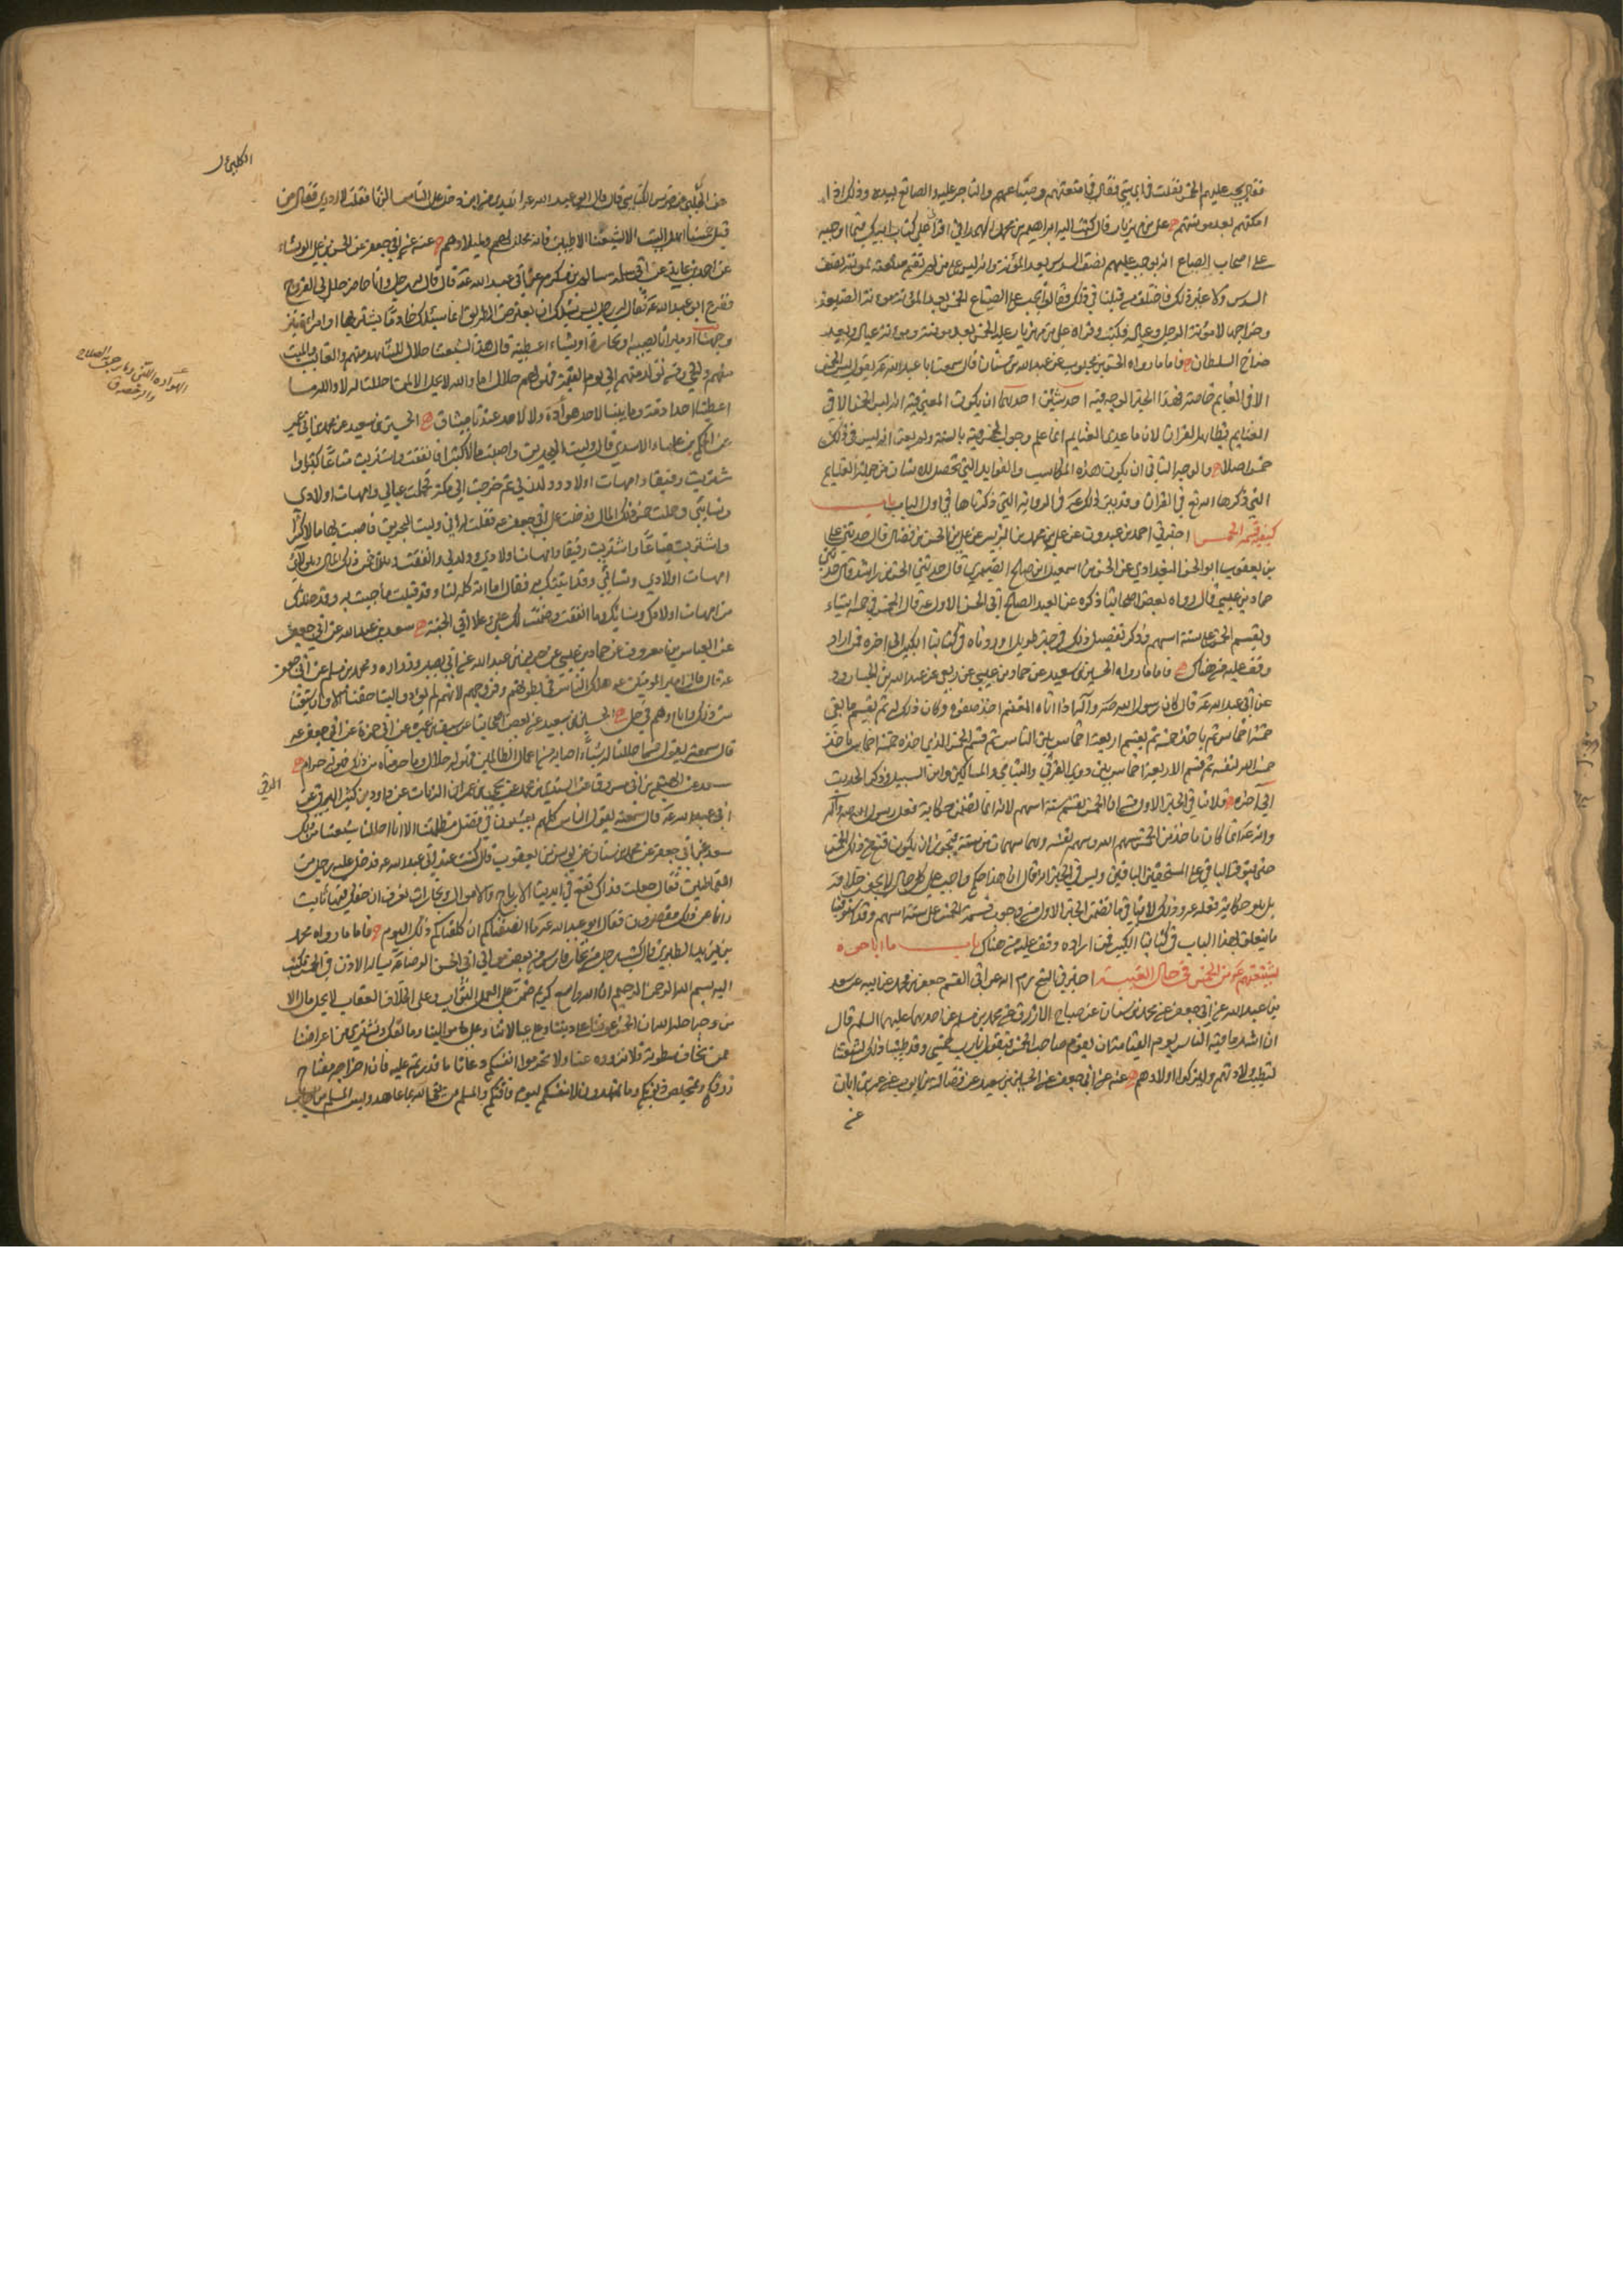 فقال يجب عليهم الخمس فقلت في اي شئ فقال في امتعتهم وضياعهم والتاجر عليه والصانع بيده وذلك اذا
امكنهم بعد مؤنتهم علي بن مهزيار قال كتب اليه ابراهيم بن محمد الهمداني اقرأني علي كتاب ابيك فيما اوجبه
على اصحاب الضياع انه يوجب عليهم نصف السدس بعد المؤنة وانه ليس على من لم تقم ضيعته بمؤنته نصف
السدس ولا غير ذلك فاختلف من قبلنا في ذلك فقالوا يجب على الضياع الخمس بعد المؤنة مؤنة الضيعة
وخراجها لا مؤنة الرجل وعياله فكتب وقرأه علي بن مهزيار عليه الخمس بعد مؤنته ومؤنة عياله وبعد
خراج السلطان فاما ما رواه الحسن بن محبوب عن عبد الله بن سنان قال سمعت ابا عبد الله ع يقول ليس الخمس
الا في الغنايم خاصة فهذا الخبر الوجه فيه احد شيئين احدهما ان يكون المعنى فيه انه ليس الخمس الا في
الغنايم بظاهر القران لان ما عدى الغنايم انما علم وجوب الخمس فيه بالسنة ولم يعن انه ليس في ذلك
خمس اصلا والوجه الثاني ان يكون هذه المكاسب والفوايد التي تحصل للانسان من جملة الغنايم
التي ذكرها الله تع في القران وقد بين ذلك ع في الرواية التي ذكرناها في اول الباب باب
كيفية قسمة الخمس اخبرني احمد بن عبدون عن علي بن محمد بن الزبير عن علي بن الحسن بن فضال قال حدثني علي
بن يعقوب ابو الحسن البغدادي عن الحسن بن اسمعيل بن صالح الصيمري قال حدثني الحسن بن راشد قال حدثني
حماد بن عيسى قال رواه بعض اصحابنا ذكره عن العبد الصالح ابي الحسن الاول ع قال الخمس في خمسة اشياء
ويقسم الخمس على ستة اسهم وذكر تفصيل ذلك في خبر طويل اوردناه في كتابنا الكبير الى اخره فمن اراد
وقف عليه من هناك فاما ما رواه الحسين بن سعيد عن حماد بن عيسى عن ربعي عن عبد الله بن الجارود
عن ابي عبد الله ع قال كان رسول الله ص وآله اذا اتاه المغنم اخذ صفوه وكان ذلك له ثم يقسم ما بقي
خمسة اخماس ثم ياخذ خمسه ثم يقسم اربعة اخماس بين الناس ثم قسم الخمس الذي اخذه خمسة اخماس ياخذ
خمس الله لنفسه ثم قسم الاربعة اخماس بين ذوي القربى واليتامى والمساكين وابن السبيل وذكر الحديث
الى اخره فلا ينافي الخبر الاول من ان الخمس يقسم ستة اسهم لانه انما تضمن حكاية فعل رسول الله ص وآله
وانه ع انما كان ياخذ من الخمس سهم الله وسهم نفسه وهما سهمان من ستة فيجوز ان يكون قنع من ذلك بالخمس
حتى يتوفر الباقي على المستحقين الباقين وليس في الخبر انه قال ان هذا حكم واجب على كل حال لا يجوز خلافه
بل هو حكاية فعله ع وذلك لا ينافي ما تضمن الخبر الاول من وجوب قسمة الخمس على ستة اسهم وقد استوفينا
ما يتعلق بهذا الباب في كتابنا الكبير فمن اراده وقف عليه من هناك باب ما اباحوه
لشيعتهم ع من الخمس في حال الغيبة اخبرني الشيخ رحمه الله عن ابي القسم جعفر بن محمد عن ابيه عن سعد
بن عبد الله عن ابي جعفر عن محمد بن سنان عن صباح الازرق عن محمد بن مسلم عن احدهما عليهما السلم قال
ان اشد ما فيه الناس يوم القيمة ان يقوم صاحب الخمس فيقول يا رب خمسي وقد طيبنا ذلك لشيعتنا
لتطيب ولادتهم وليزكوا اولادهم عنه عن ابي جعفر عن الحسين بن سعيد عن فضالة بن ايوب عن عمر بن ابان
عن
الكليني
عن الكلبي عن ضريس الكناسي قال قال ابو عبد الله ع اتدري من اين دخل على الناس الزنا فقلت لا ادري فقال من
قبل خمسنا اهل البيت الا لشيعتنا الاطيبين فانه محلل لهم ولميلادهم عنه عن ابي جعفر عن الحسن بن علي الوشاء
عن احمد بن عايذ عن ابي سلمة سالم بن مكرم عن ابي عبد الله ع قال قال رجل وانا حاضر حلل لي الفروج
ففزع ابو عبد الله ع فقال له رجل ليس يسئلك ان يعترض الطريق انما يسئلك خادما يشتريها او امراة يتزوجها
او ميراثا يصيبه او تجارة او شيئا اعطيه قال هذا لشيعتنا حلال الشاهد منهم والغائب والميت
منهم والحي ومن تولد منهم الى يوم القيمة فهو لهم حلال اما والله لا يحل الا لمن احللنا له ولا والله ما
اعطينا احدا ذمة وما بيننا لاحد هوادة ولا لاحد عندنا ميثاق الحسين بن سعيد عن محمد بن ابي عمير
عن الحكم بن علباء الاسدي قال وليت البحرين واصبت مالا كثيرا فانفقت واشتريت متاعا كثيرا وا
شتريت رقيقا وامهات اولاد وولد لي ثم خرجت الى مكة فحملت عيالي وامهات اولادي
ونسائي وحملت خمس ذلك المال فدخلت على ابي جعفر ع فقلت له اني وليت البحرين فاصبت بها مالا كثيرا
واشتريت ضياعا واشتريت رقيقا وامهات اولادي وولد لي وانفقت وهذا خمس ذلك المال وهؤلاء
امهات اولادي ونسائي وقد اتيتك به فقال اما انه كله لنا وقد قبلت ما جئت به وقد حللتك
من امهات اولادك ونسائك وما انفقت وضمنت لك علي وعلى ابي الجنة سعد بن عبد الله عن ابي جعفر
عن العباس بن معروف عن حماد بن عيسى عن حريز بن عبد الله عن ابي بصير وزرارة ومحمد بن مسلم عن ابي جعفر
ع قال قال امير المؤمنين ع هلك الناس في بطونهم وفروجهم لانهم لم يؤدوا الينا حقنا الا وان شيعتنا
من ذلك واباءهم في حل الحسين بن سعيد عن بعض اصحابنا عن سيف بن عميرة عن ابي حمزة عن ابي جعفر ع
قال سمعته يقول من احللنا له شيئا اصابه من اعمال الظالمين فهو له حلال وما حرمناه من ذلك فهو له حرام
سعد عن الهيثم بن ابي مسروق عن السندي بن محمد عن يحيى بن عمران الزيات عن داود بن كثير الرقي عن
الرقي
ابي عبد الله ع قال سمعته يقول الناس كلهم يعيشون في فضل مظلمتنا الا انا احللنا شيعتنا من ذلك
سعد عن ابي جعفر عن محمد بن سنان عن يونس بن يعقوب قال كنت عند ابي عبد الله ع فدخل عليه رجل من
القماطين فقال جعلت فداك تقع في ايدينا الارباح والاموال وتجارات نعرف ان حقك فيها ثابت
وانا عن ذلك مقصرون فقال ابو عبد الله ع ما انصفناكم ان كلفناكم ذلك اليوم فاما ما رواه محمد
بن يزيد الطبري قال كتب رجل من تجار فارس من بعض موالي ابي الحسن الرضا ع يساله الاذن في الخمس فكتب
اليه بسم الله الرحمن الرحيم ان الله واسع كريم ضمن على العمل الثواب وعلى الخلاف العقاب لا يحل مال الا
من وجه احله الله ان الخمس عوننا على ديننا وعلى عيالاتنا وعلى موالينا وما نفك ونشتري من اعراضنا
ممن نخاف سطوته فلا تزووه عنا ولا تحرموا انفسكم دعاءنا ما قدرتم عليه فان اخراجه مفتاح
رزقكم وتمحيص ذنوبكم وما تمهدون لانفسكم ليوم فاقتكم والمسلم من يفي لله بما عاهد وليس المسلم من اجاب